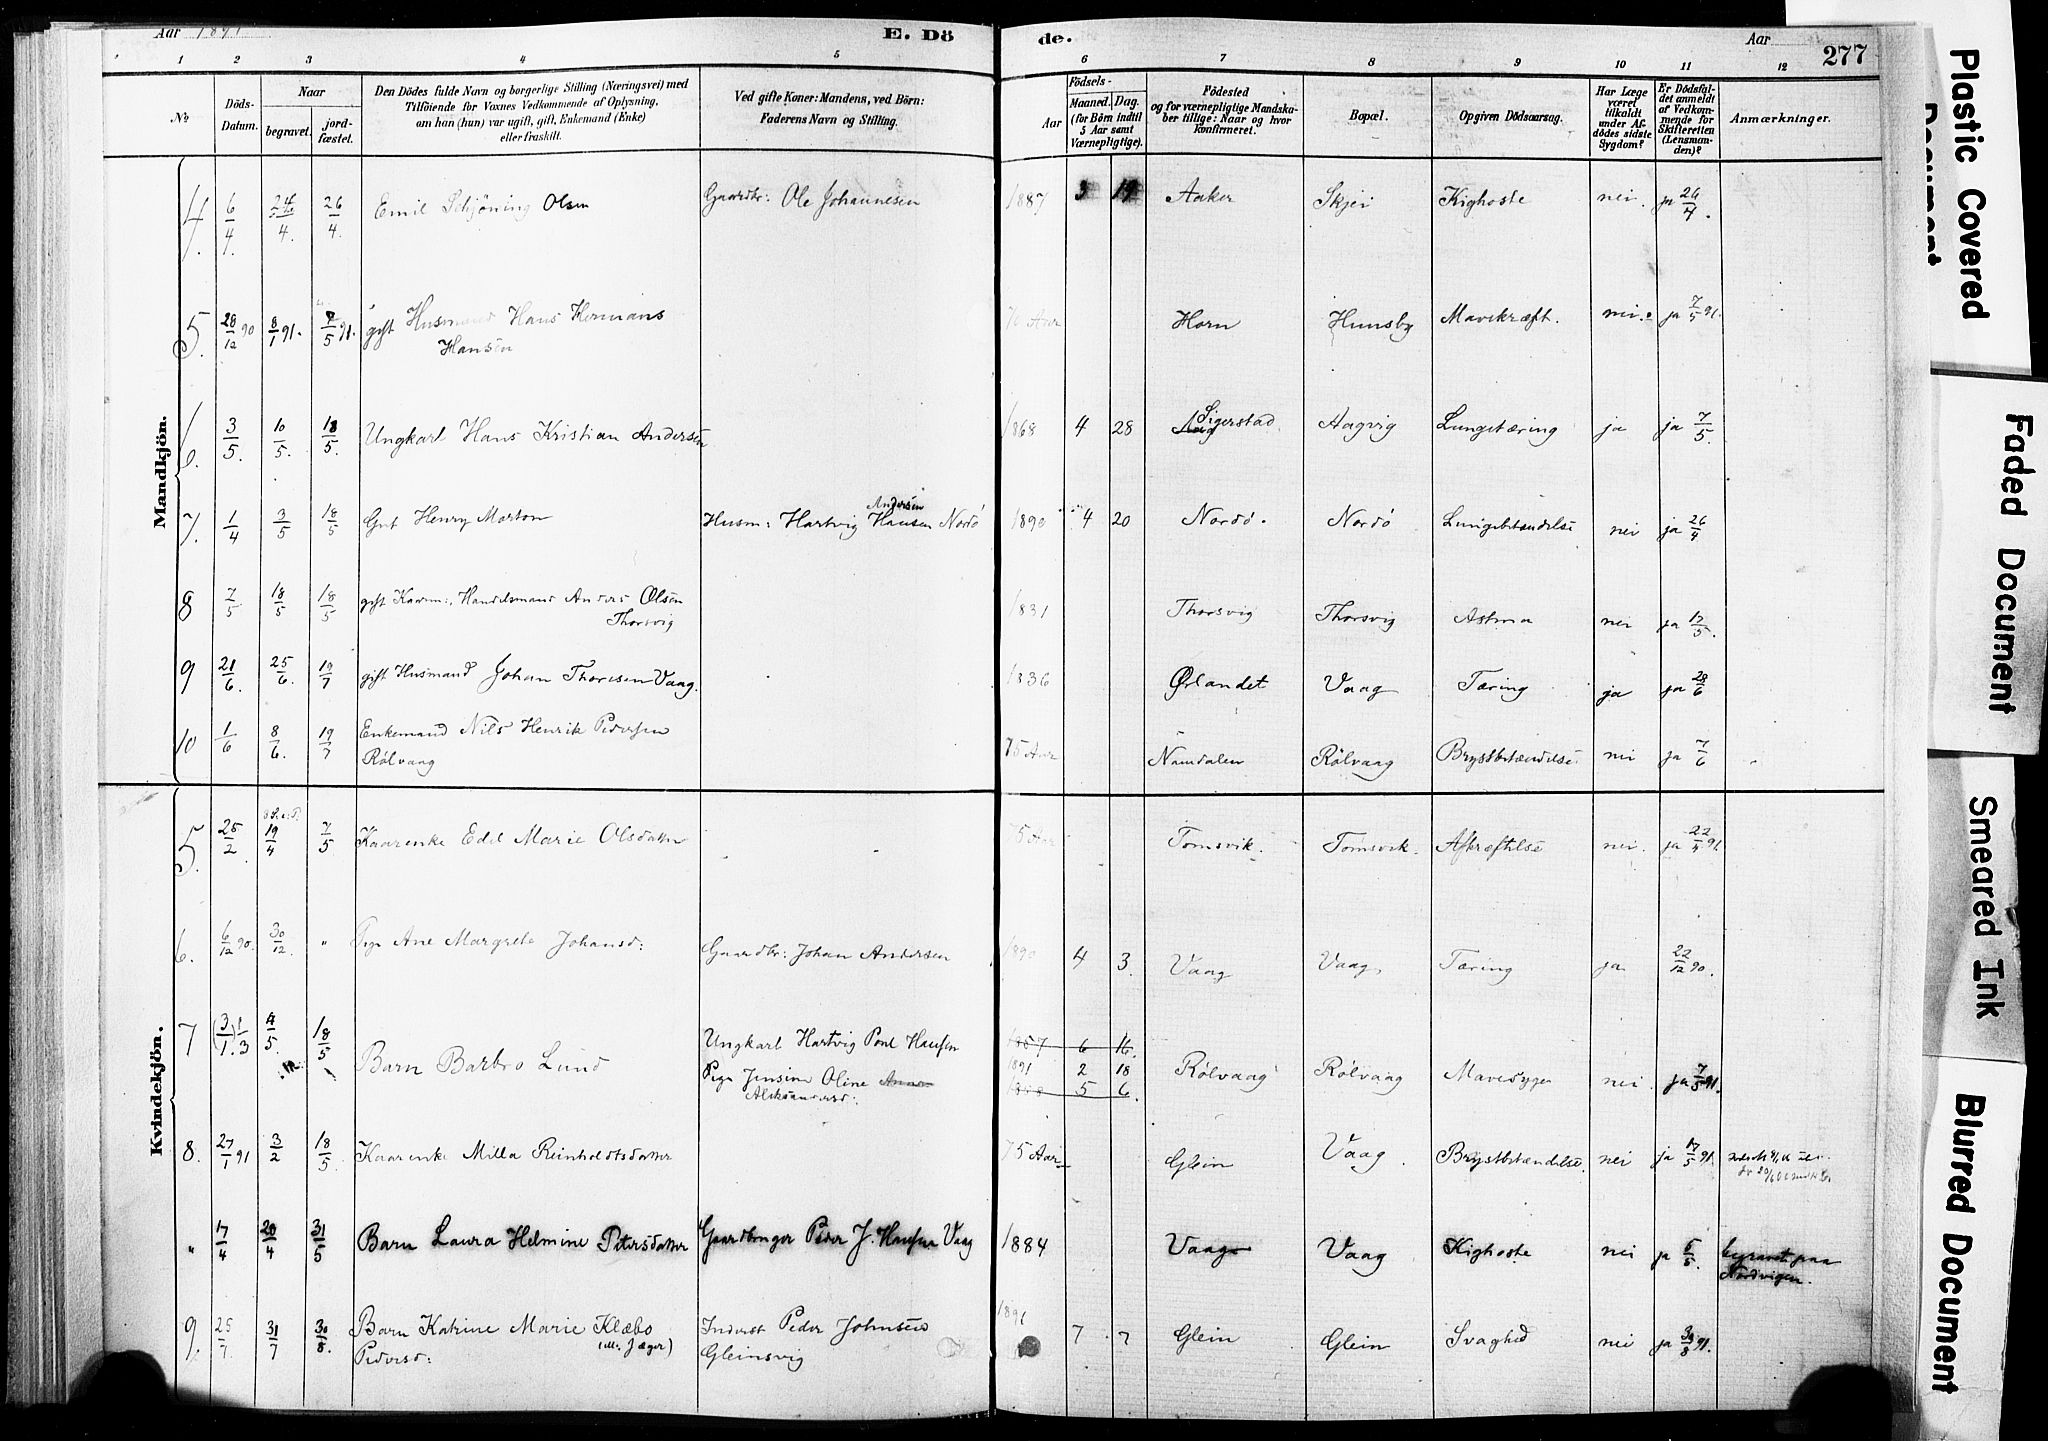 Aar 1891
E. Dö
de.
Aar
277
1 2 3 4 5 6 7 8 9 10 11 12
No
Döds-
Datum.
Naar
begravet.
jord-
fæstet.
Den Dödes fulde Navn og borgerlige Stilling (Næringsvei) med
Tilföiende for Voxnes Vedkommende af Oplysning,
om han (hun) var ugift, gift, Enkemand (Enke)
eller fraskilt.
Ved gifte Koner: Mandens, ved Börn:
Faderens Navn og Stilling.
Födsels-
Aar
Maaned.
Dag.
(for Börn indtil
5 Aar samt
Værnepligtige).
Födested
og for værnepligtige Mandska-
ber tillige: Naar og hvor
konfirmeret.
Bopæl.
Opgiven Dödsaarsag.
Har Læge
været
tilkaldt
under Af-
dödes sidste
Sygdom?
Er Dödsfal-
det anmeldt
af Vedkom-
mende for
Skifteretten
(Lensman-
den)?
Anmærkninger.
Mandkjön.
4. 6/4. 26/4. 26/4. Emil Schjöning Olsen Gaardbr: Ole Johannesen 1887 3 19 Aaker Skjei Kighoste nei. ja 26/4.
5. 28/12 90 8/1 91. 7/5 91. gift Husmand Hans Hermans Horn Hunsby Mavekræft. nei. ja 7/5 91.
Hansen
6. 3/5. 10/5. 18/5. Ungkarl Hans Kristian Andersen 1868 4 28 Sigerstad Aagvig Lungetæring ja ja 7/5.
Andersen
7. 1/4 3/5 18/5 Gut Henry Morton Husm: Hartvig Hansen Nordö 1890 4 20 Nordö. Nordö Lungebetændelse nei ja 26/4
8 7/5 18/5 18/5 gift Kaarm:, Handelsmand Anders Olsen 1831 Thorsvig Thorsvig Astma nei ja 17/5.
Thorsvig
9 21/6. 25/6. 19/7 gift Husmand Johan Thoresen Vaag. 1836 Ørlandet Vaag Tæring ja ja 28/6
10 1/6 8/6. 19/7 Enkemand Nils Henrik Pedersen 75 Aar Namdalen Rølvaag Brystbetændelse nei ja 7/6
Rølvaag
Kvindekjön.
5. 25/2 19/4 7/5 Kaarenke Edel Marie Olsdatter 75 Aar Tomsvik. Tomsvik. Afkræftelse nei. ja 22/4 91
6. 6/12 90. 30/12. " Pige Ane Margrete Johansd: Gaardbr: Johan Andersen 1890 4 3. Vaag Vaag Tæring ja 22/12 90.
7 (3/1) 1/3 4/5. 18/5 Barn Barbro Lund Ungkarl Hartvig Poul Hansen 1857 6 16.
1891 2 18 Rølvaag Rølvaag Mavesyge nei ja 7/5 91.
Pige Jensine Oline 5 6
Aleksandersd:
8. 27/1 91 3/2 18/5 Kaarenke Milla Reinholdtsdatter 75 Aar Glein Vaag. Brystbetændelse. nei ja 17/5 91.
" 17/4 20/4 31/5 Barn Laura Helmine Petersdatter Gaardbruger Peder J. Hansen Vaag 1884 Vaag Vaag Kighoste nei ja 5/5. begravet paa
Nordvigen.
9. 25/7. 31/7 30/8. Barn Katrine Marie Klæbo Inderst Peder Johnsen 1891 7 7 Glein Glein Svaghed nei ja 30/8 91.
Pedersd: Jæger) Gleinsvig
Plastic Covered
Document
Faded Document
Smeared Ink
Blurred Document